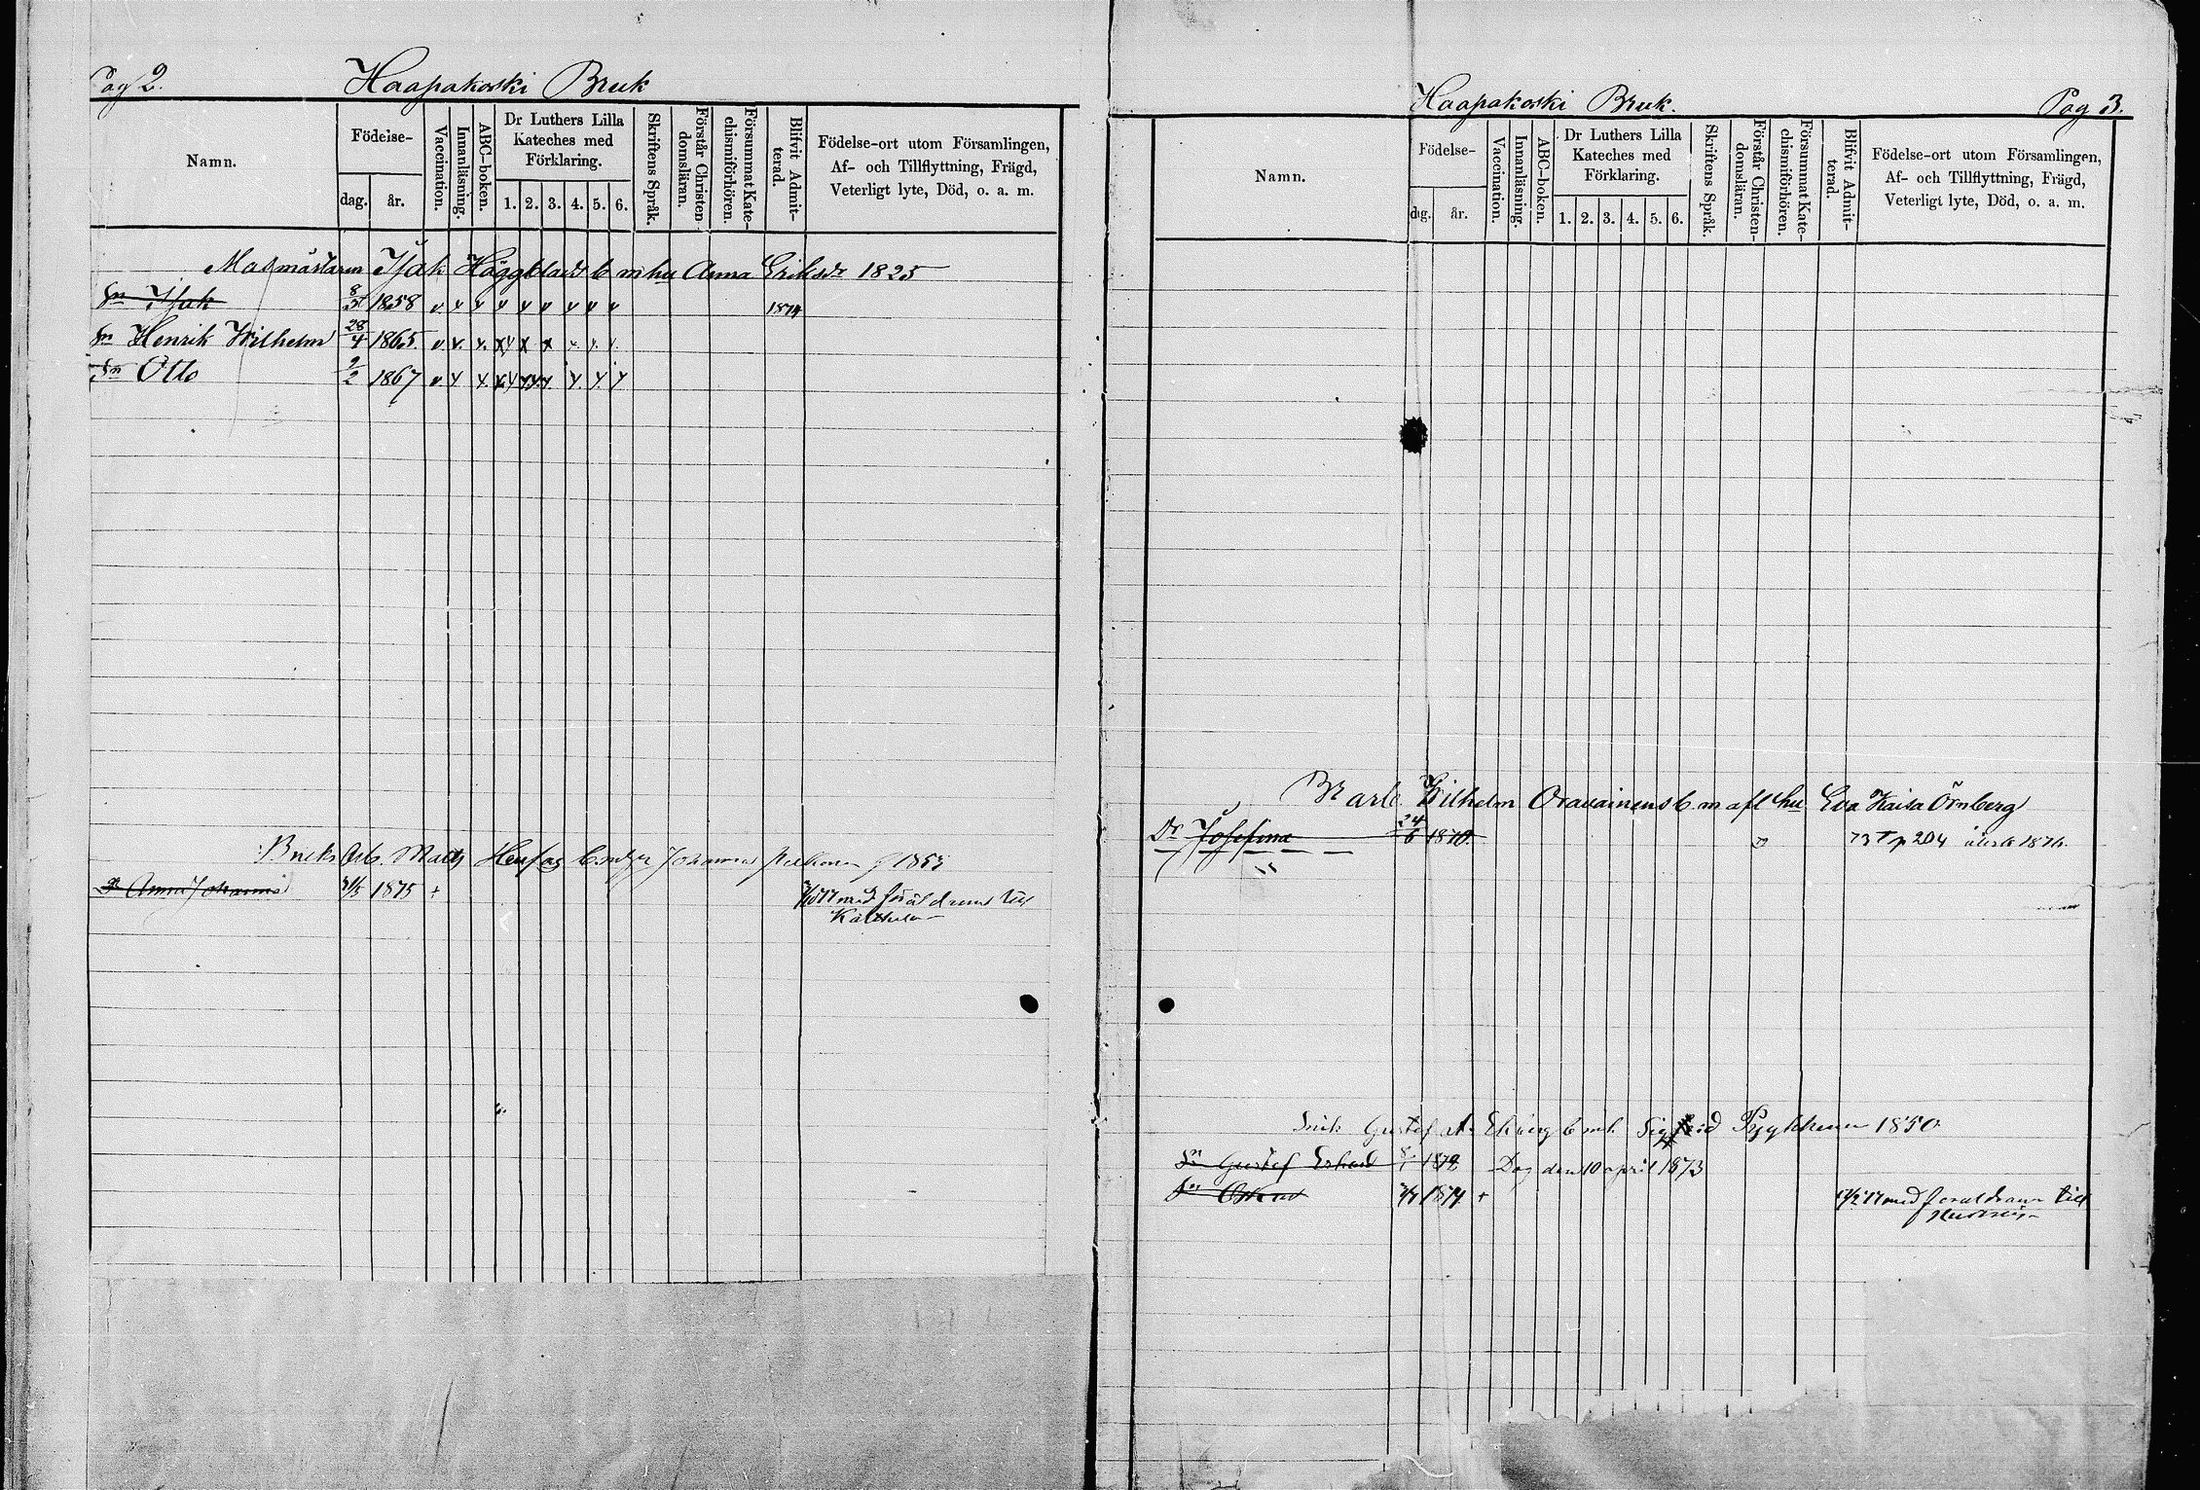 Pag 2. Haapakoski Bruk
Namn. Födelse- dag. år. Vaccination. Innanläsning. ABC-boken. Dr Luthers Lilla Kateches med Förklaring. 1. 2. 3. 4. 5. 6. Skriftens Språk. Förstår Christendomsläran. Försummat Katechismiförhören. Blifvit Admitterad. Födelse-ort utom Församlingen, Af- och Tillflyttning, Frägd, Veterligt lyte, Död, o. a. m.
Masmästaren Isak Häggblads b m hu Anna Eriksdr 1825
Sn Isak 8/5 1858 v v v v v v v v v 1874
Sn Henrik Wilhelm 28/4 1865
Sn Otto 2/2 1867
Bruks Arb. Matts b m Johanna 1853
Dr Anna Johanna 1875 +
med föräldrarne till
Haapakoski Bruk. Pag 3.
Namn. Födelse- dag. år. Vaccination. Innanläsning. ABC-boken. Dr Luthers Lilla Kateches med Förklaring. 1. 2. 3. 4. 5. 6. Skriftens Språk. Förstår Christendomsläran. Försummat Katechismiförhören. Blifvit Admitterad. Födelse-ort utom Församlingen, Af- och Tillflyttning, Frägd, Veterligt lyte, Död, o. a. m.
Br arb. Wilhelm Oravainens b m afl hu Eva Kaisa Örnberg
Dr Josefina 24/6 1870. 73 T p 204 åter 1876.
Gustaf Ekberg b m h Sigfrid Pyykkönen 1850.
Sn Gustaf Erhard 1872 Dog den 10 april 1873
Sn Oskar 1874 + med föräldrarne till